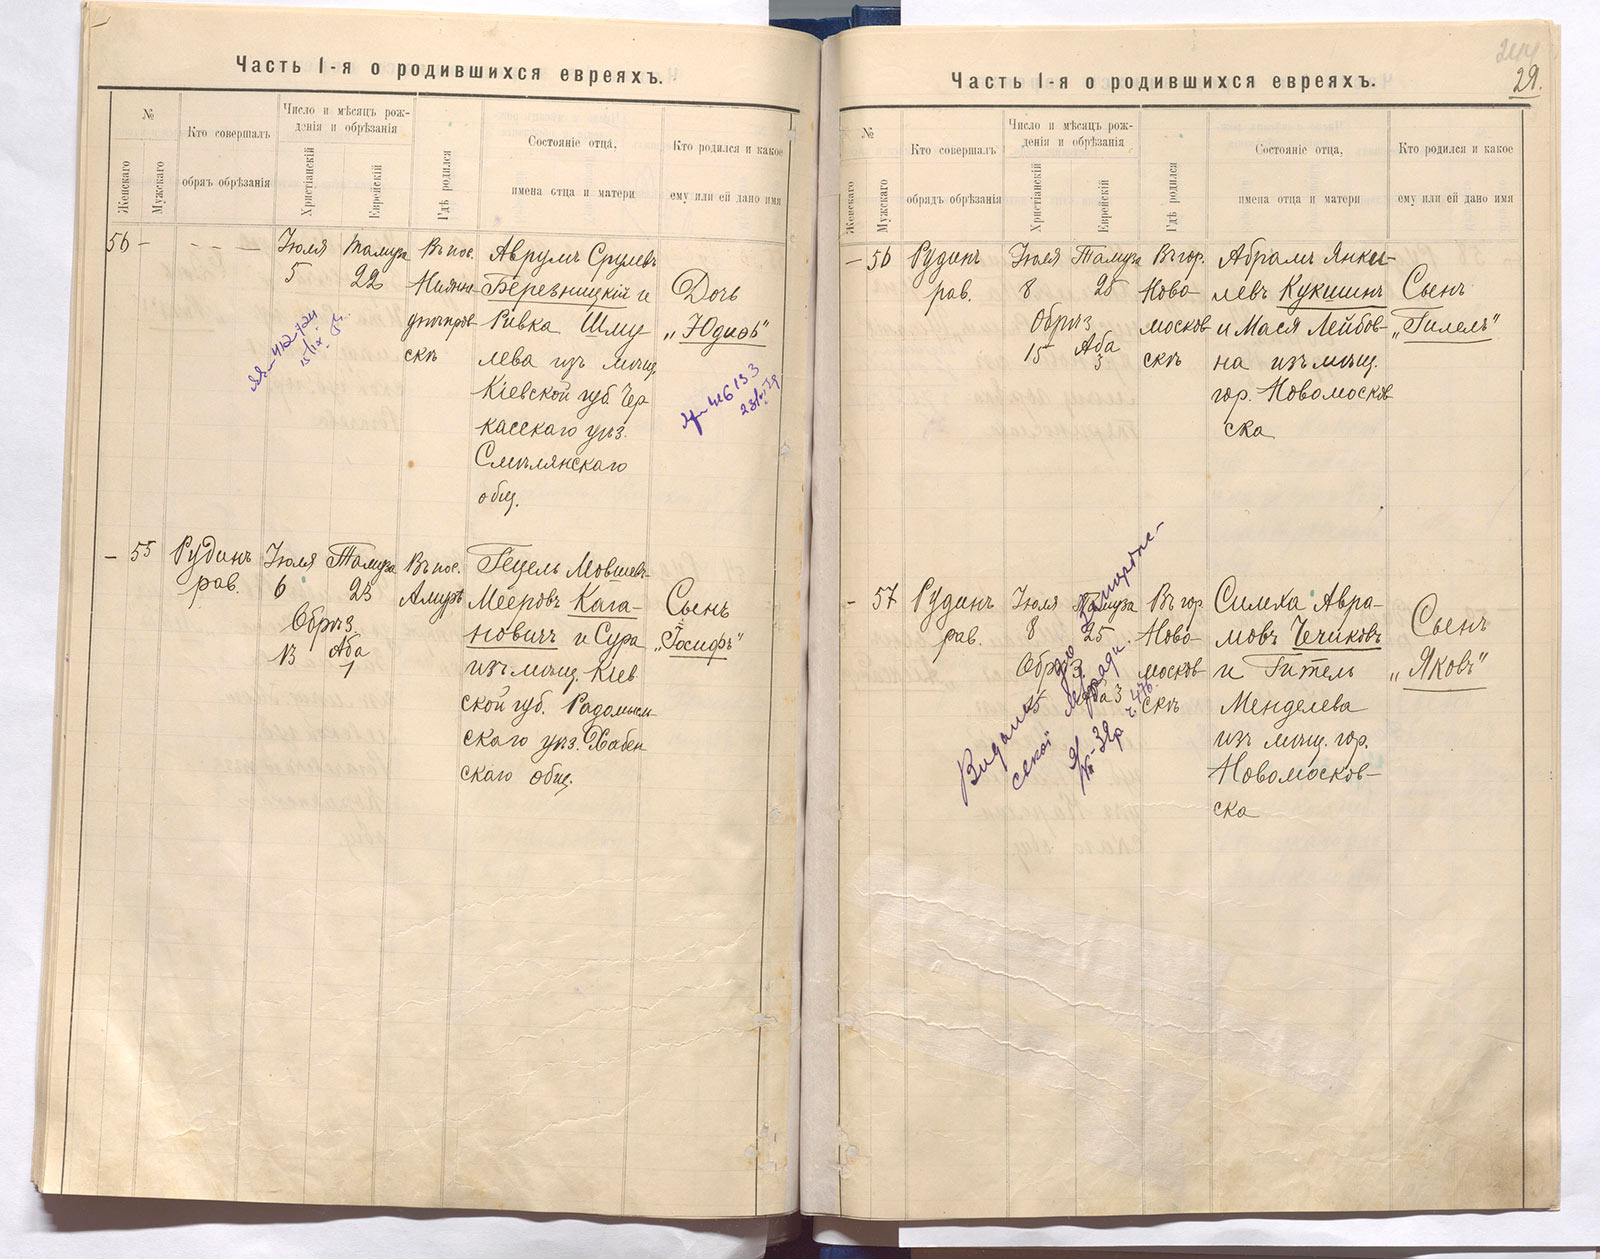 Часть I-я о родившихся евреяхъ.
№
Женскаго
Мужскаго
Кто совершалъ
обрядъ обрѣзанія
Число и мѣсяцъ рож-
денія и обрѣзанія
Христіанскій
Еврейскій
Гдѣ родился
Состояніе отца,
имена отца и матери
Кто родился и какое
ему или ей дано имя
56 -
- - - -
Іюля
5
Тамуза
22
Въ пос.
Нижне
днѣпров
скѣ
Аврумъ Срулевъ
Березницкій и
Ривка Шму
лева изъ мѣщ.
Кіевской губ. Чер
касскаго уѣз.
Смѣлянскаго
общ.
Дочь
„Юдифь"
ЯЯ-412724
15/IX
416133
- 55
Рудинъ
рав.
Іюля
6
Тамуза
23
Обрѣз.
13 Аба
1
Въ пос.
Амурѣ
Гецель Мовшевъ-
Мееровъ Кага-
новичъ и Сура
изъ мѣщ. Кіев
ской губ. Радомысл
скаго уѣз. Хабен
скаго общ.
Сынъ
„Іосифъ"
Часть I-я о родившихся евреяхъ.
29.
№
Женскаго
Мужскаго
Кто совершалъ
обрядъ обрѣзанія
Число и мѣсяцъ рож-
денія и обрѣзанія
Христіанскій
Еврейскій
Гдѣ родился
Состояніе отца,
имена отца и матери
Кто родился и какое
ему или ей дано имя
- 56
Рудинъ
рав.
Іюля
8
Тамуза
25
Обрѣз
15 Аба
3
Въ гор.
Ново-
москов
скѣ
Абрамъ Янке-
левъ Кукишнъ
и Мася Лейбов-
на изъ мѣщ.
гор. Новомосков
ска
Сынъ
„Гилель"
- 57
Рудинъ
рав.
Іюля
8
Тамуза
25
Обрѣз.
15 Аба 3
Въ гор
Ново-
москов
скѣ
Симха Авра-
мовъ Чечиковъ
и Гитель
Менделева
изъ мѣщ. гор.
Новомосков-
ска
Сынъ
„Яковъ"